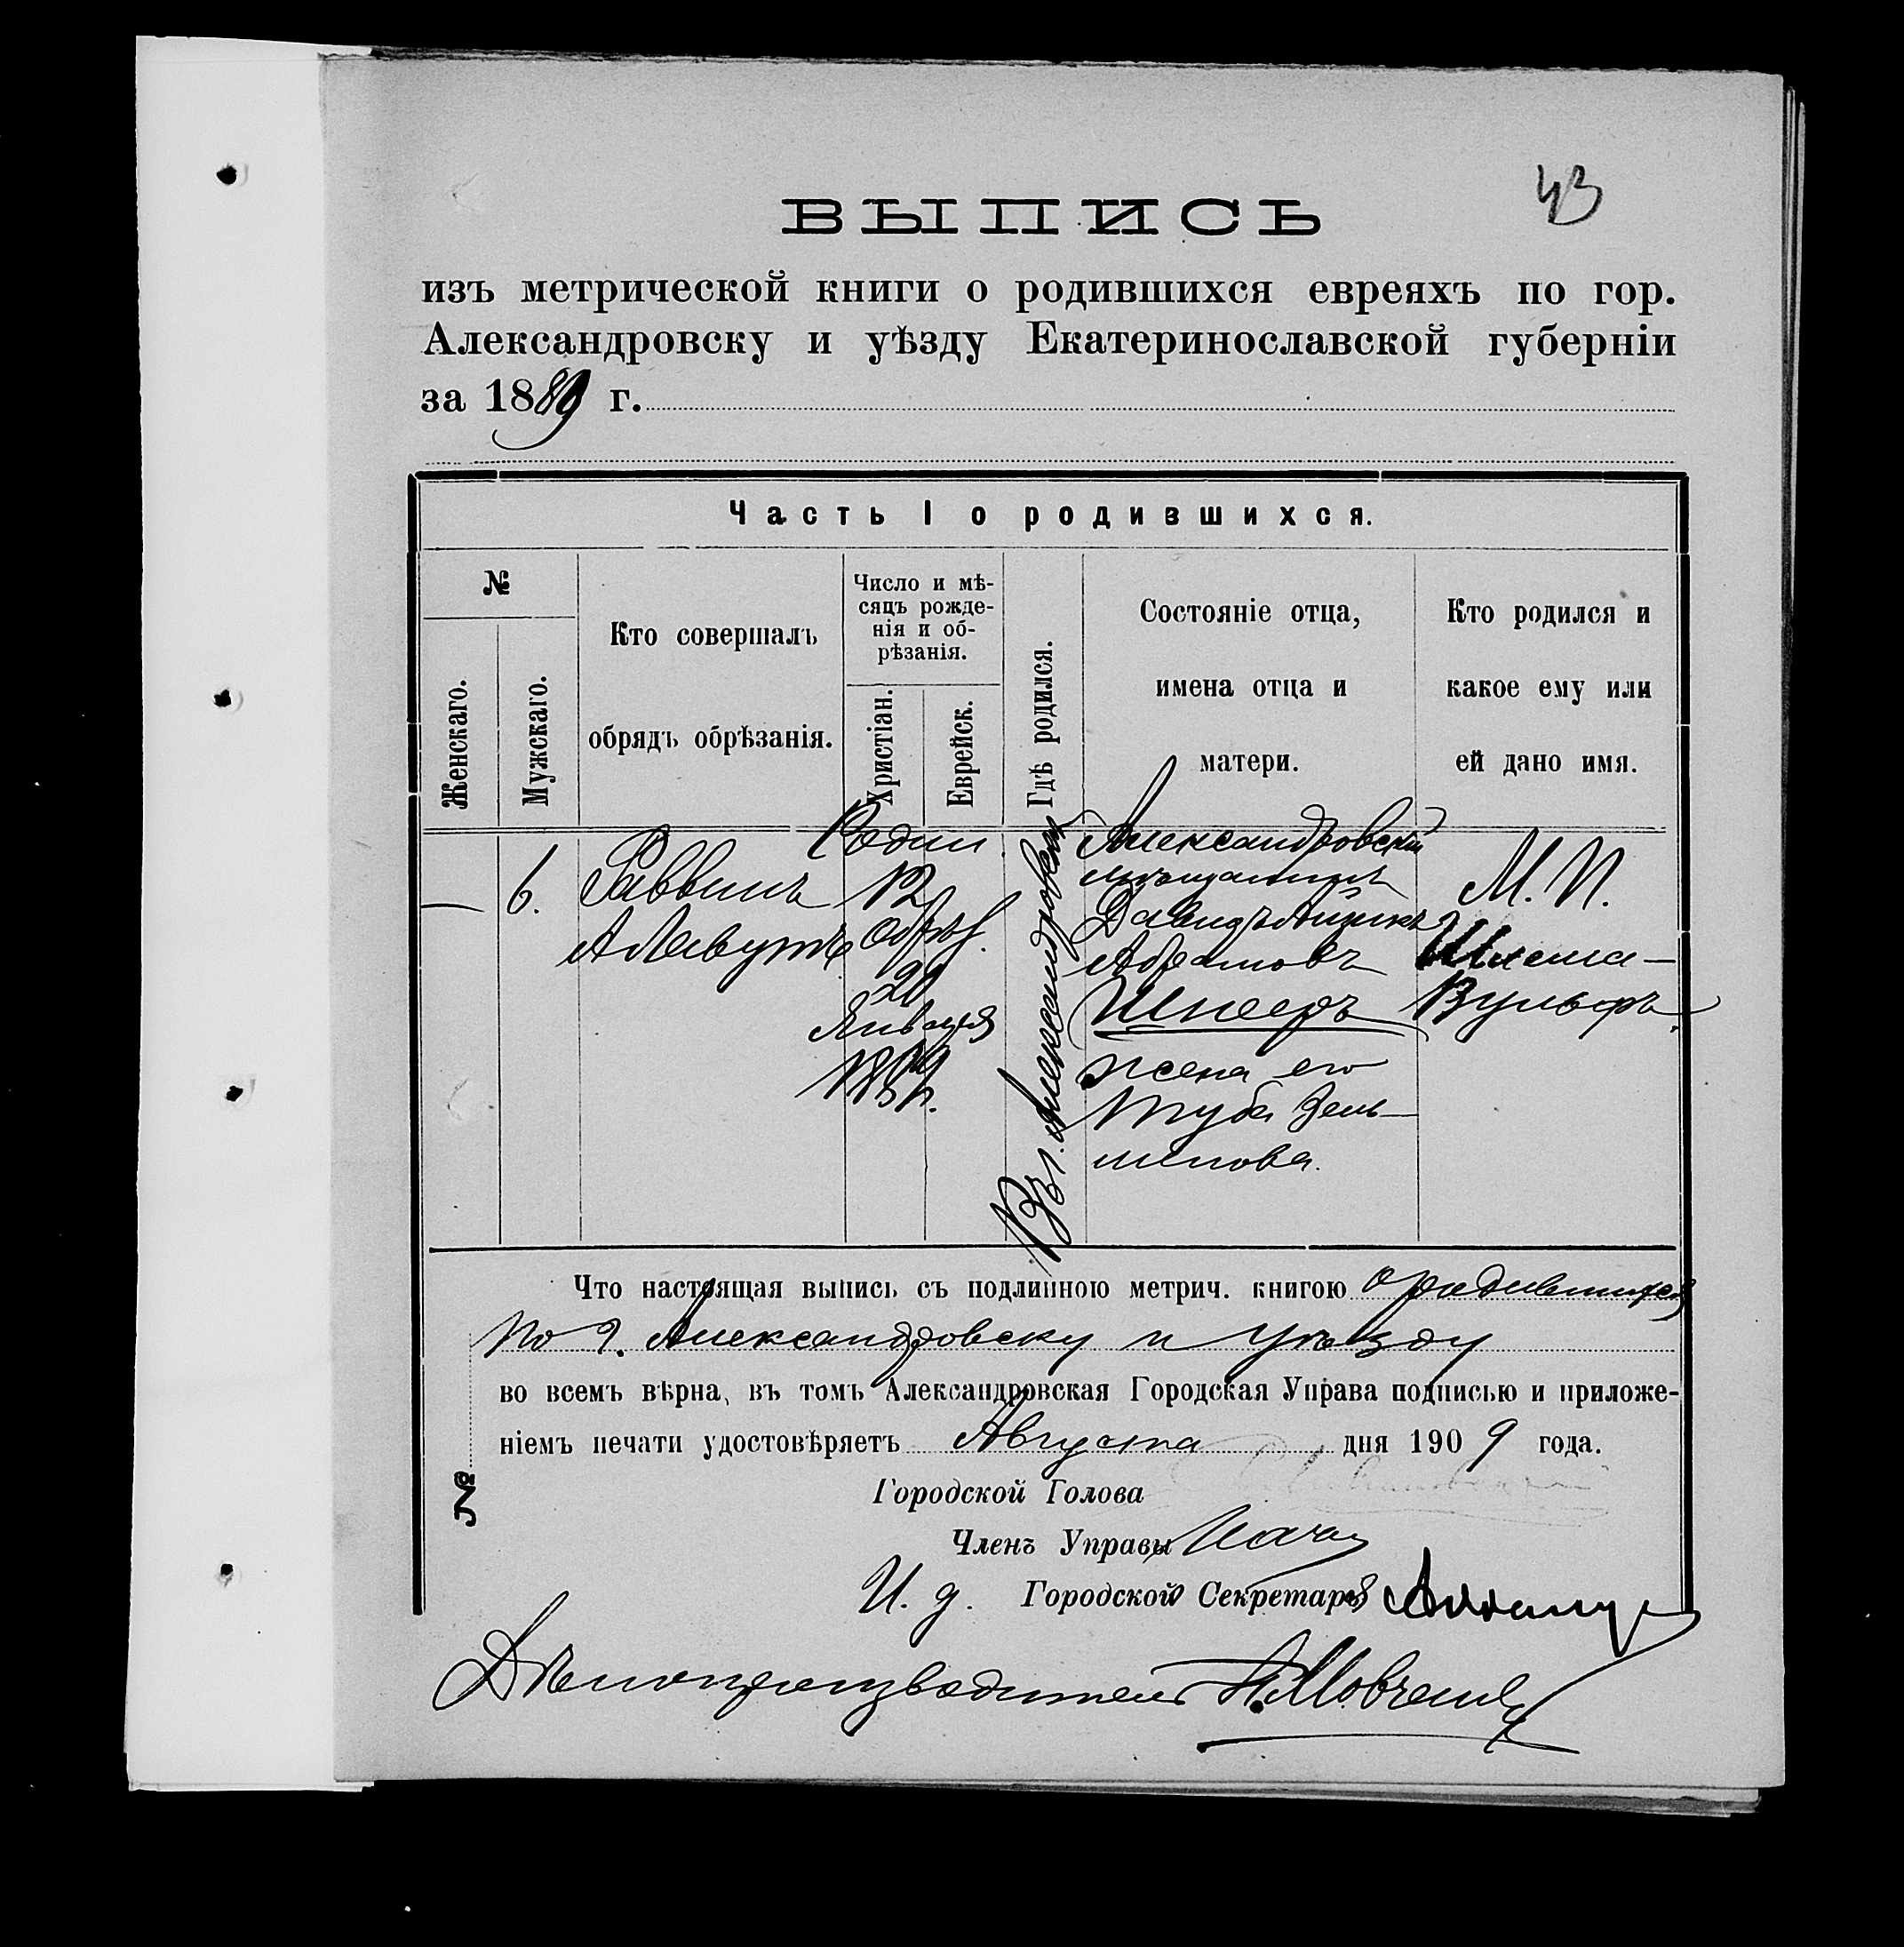 43
ВЫПИСЬ
изъ метрической книги о родившихся евреяхъ по гор.
Александровску и уѣзду Екатеринославской губерніи
за 1889 г.
Часть I о родившихся.
№
Женскаго.
Мужскаго.
Кто совершалъ
обрядъ обрѣзанія.
Число и мѣ-
сяцъ рожде-
нія и об-
рѣзанія.
Христіан.
Еврейск.
Гдѣ родился.
Состояніе отца,
имена отца и
матери.
Кто родился и
какое ему или
ей дано имя.
—
6.
Раввинъ
А Лавутъ
Родил.
12
обрѣз.
20
Января
1889 г.
Въ г. Александровскѣ
Александровскій
мѣщанинъ
Давидъ Айзикъ
Абрамовъ
Шнееръ
жена его
Туба Зель-
манова.
М. П.
Шлема-
Вульфъ.
Что настоящая выпись съ подлинною метрич. книгою о родившихся
по г. Александровску и уѣзду
во всемъ вѣрна, въ томъ Александровская Городская Управа подписью и приложе-
ніемъ печати удостовѣряетъ Августа дня 1909 года.
№
Городской Голова
Членъ Управы
И. д. Городской Секретарь
Дѣлопроизводитель